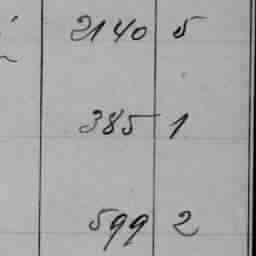 2140 5
385 1
599 2